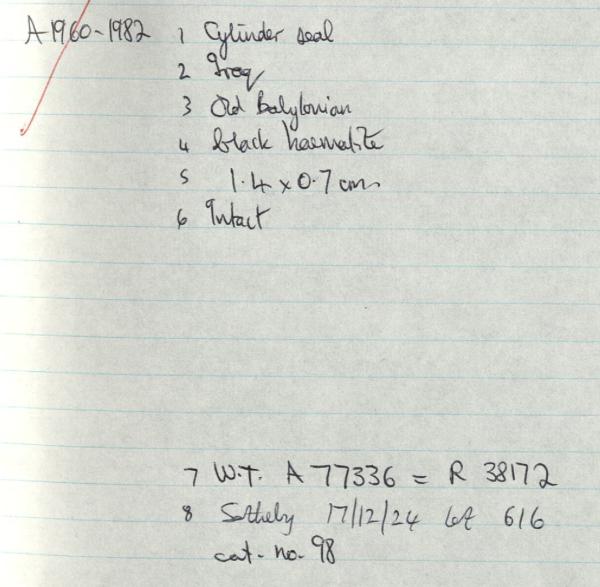 A1960-1982 1 Cylinder seal
2 Iraq
3 Old Babylonian
4 black haematite
5 1.4 x 0.7 cm
6 Intact
7 W.T. A 77336 = R 38172
8 Sotheby 17/12/24 lot 616
cat. no. 98